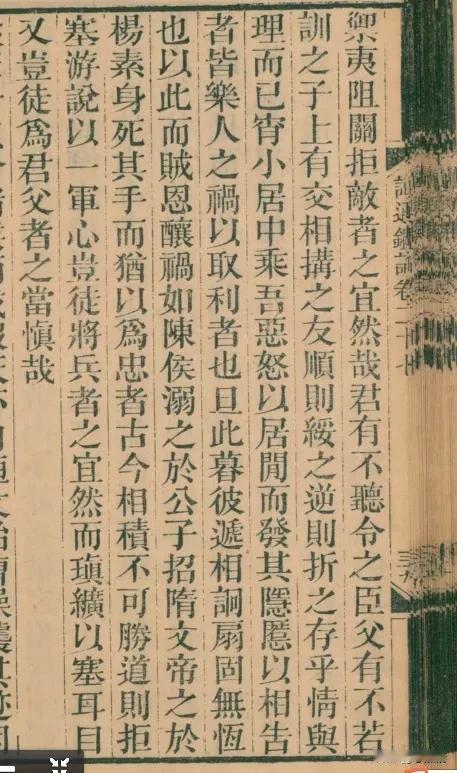 讀通鑑論卷二十七
禦夷阻關拒敵者之宜然哉君有不聽令之臣父有不若
訓之子上有交相搆之友順則綏之逆則折之存乎情與
理而已宵小居中乘吾惡怒以居閒而發其隱慝以相告
者皆樂人之禍以取利者也旦此暮彼遞相詗扇固無恆
也以此而賊恩釀禍如陳侯溺之於公子招隋文帝之於
楊素身死其手而猶以爲忠者古今相積不可勝道則拒
塞游說以一軍心豈徒將兵者之宜然而瑱纊以塞耳目
又豈徒爲君父者之當愼哉